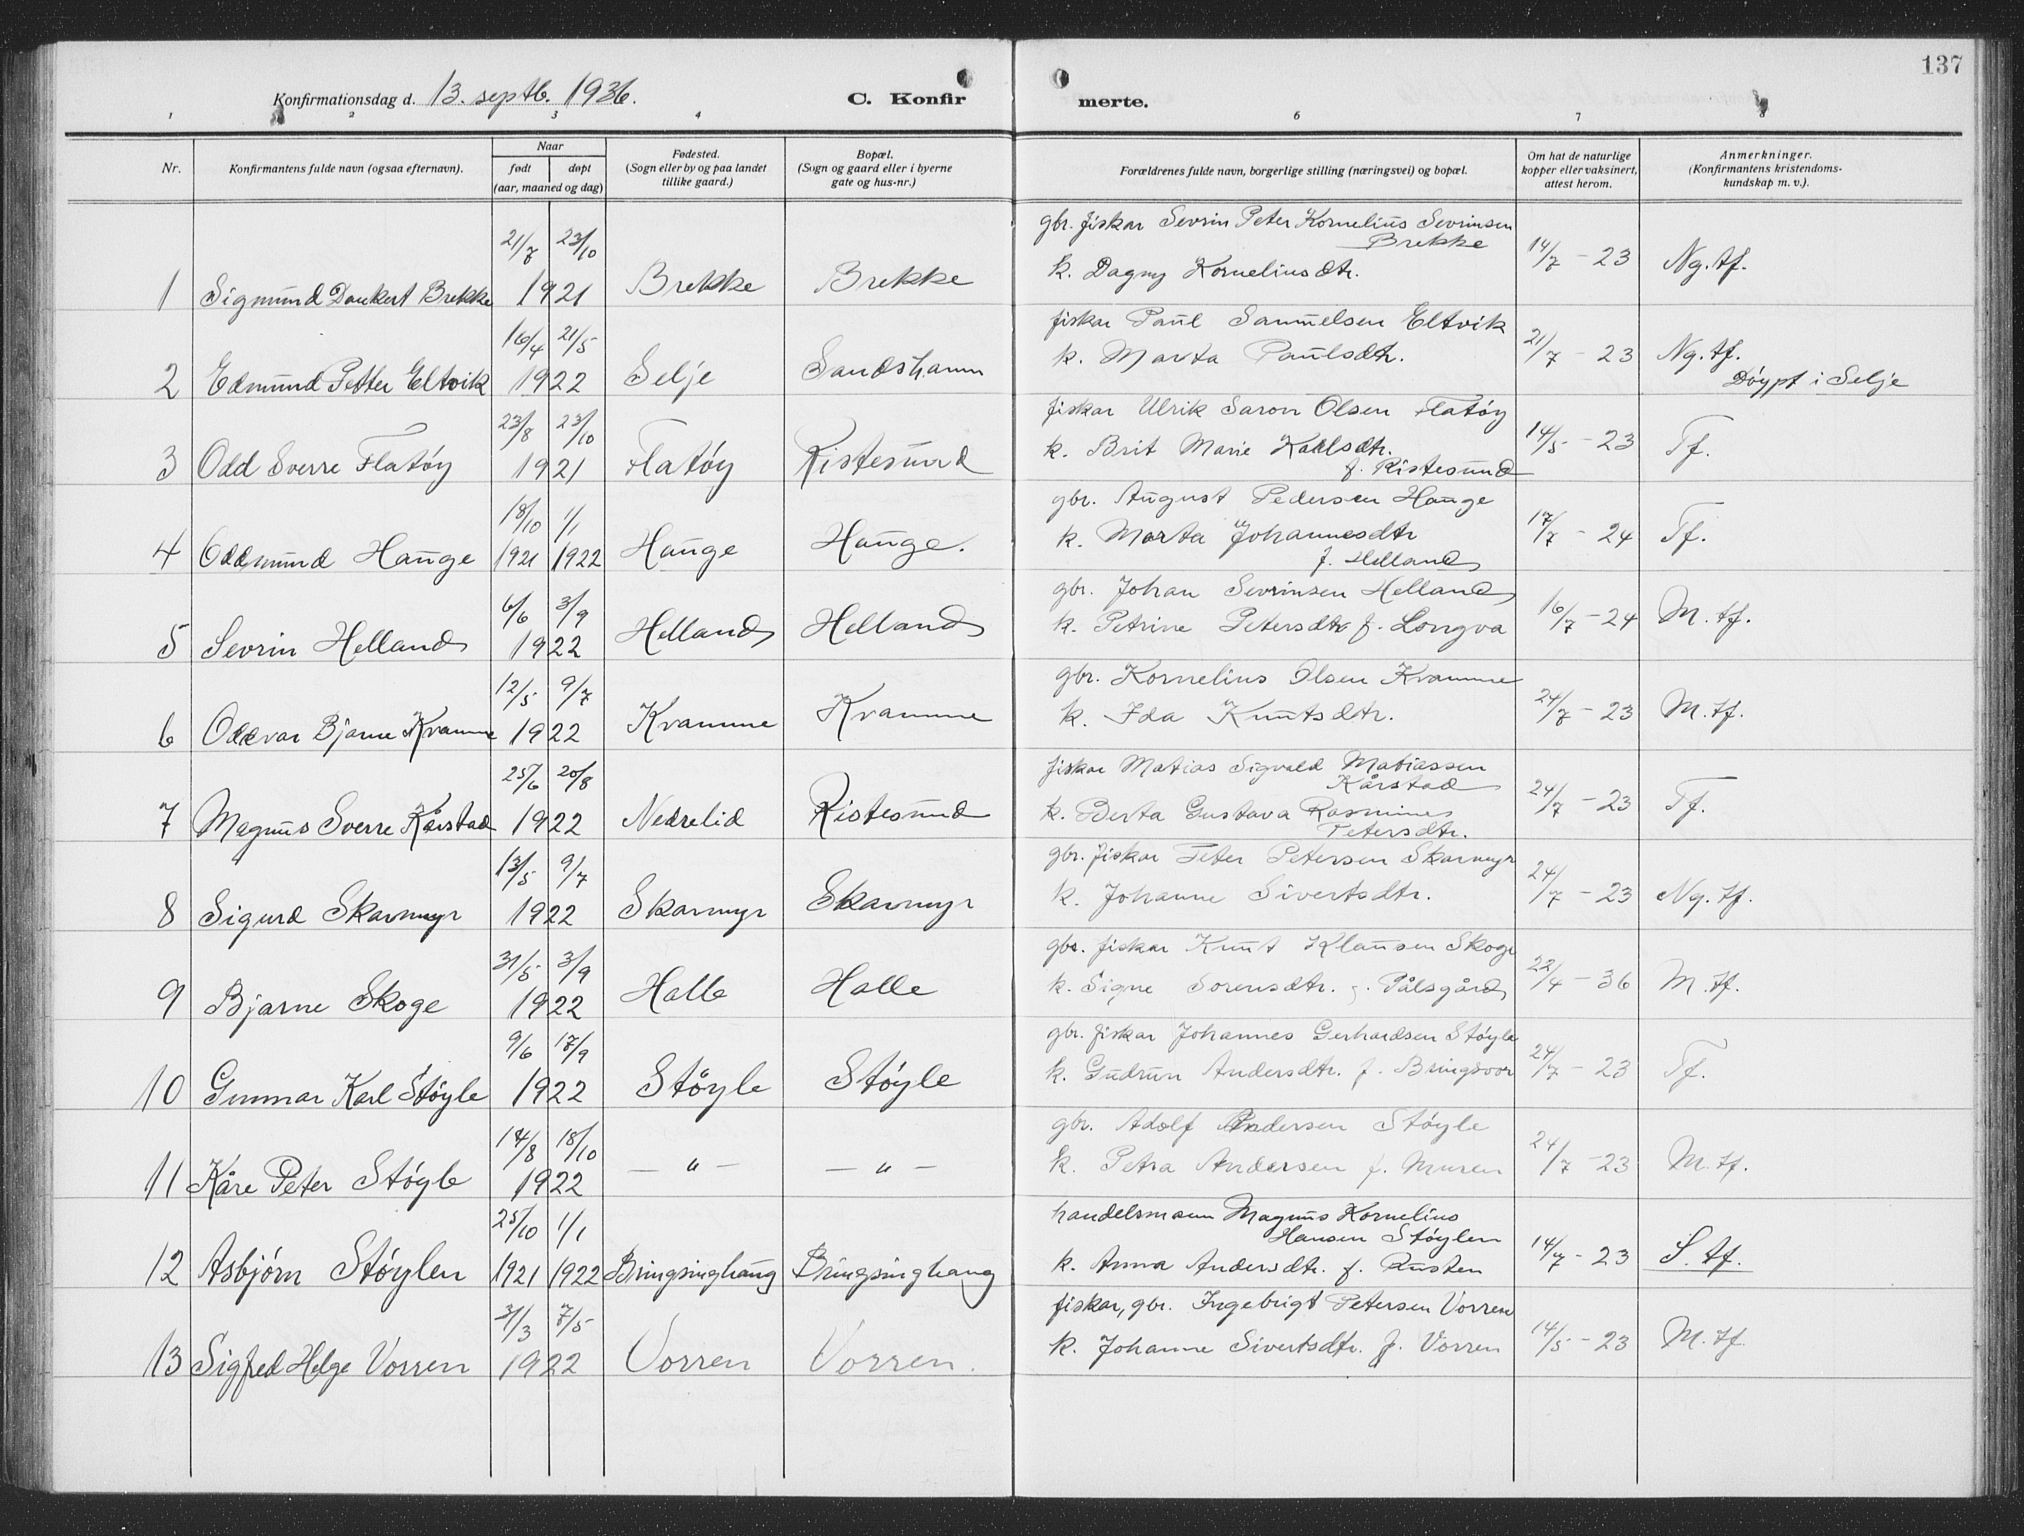 137
Konfirmationsdag d. 13. septb. 1936. C. Konfir merte.
1 2 3 4 6 7 8
Nr. Konfirmantens fulde navn (ogsaa efternavn). Naar født døpt (aar, maaned og dag) Fødested. (Sogn eller by og paa landet tillike gaard.) Bopæl. (Sogn og gaard eller i byerne gate og hus-nr.) Forældrenes fulde navn, borgerlige stilling (næringsvei) og bopæl. Om hat de naturlige kopper eller vaksinert, attest herom. Anmerkninger. (Konfirmantens kristendoms-kundskap m. v.).
21/7 23/10 gbr. fiskar Sevrin Peter Kornelius Sevrinsen
Brekke
1 Sigmund Dankert Brekke 1921 Brekke Brekke k. Dagny Korneliusdtr. 14/7 - 23 Ng. tf.
16/4 21/5 fiskar Paul Samuelsen Eltvik
2 Edmund Petter Eltvik 1922 Selje Sandshamn k. Marta Paulsdtr. 21/7 - 23 Ng. tf.
Döypt i Selje
23/8 23/10 fiskar Ulrik Saron Olsen Flatöy
3 Odd Sverre Flatöy 1921 Flatöy Ristesund k. Brit Marie Karlsdtr. 14/5 - 23 Tf.
f. Ristesund
18/10 1/1 gbr. August Pedersen Hauge
4 Oddmund Hauge 1921 1922 Hauge Hauge. k. Marta Johannesdtr 17/7 - 24 Tf.
f. Helland
6/6 3/9 gbr. Johan Sevrinsen Helland
5 Sevrin Helland 1922 Helland Helland k. Petrine Petersdtr f. Longva 16/7 - 24 M. tf.
12/5 9/7 gbr. Kornelius Olsen Kramme
6 Oddvar Bjarne Kvamme 1922 Kvamme Kvamme k. Ida Knutsdtr. 24/7 - 23 M. tf.
25/6 20/8 fiskar Matias Sigvald Matiassen
Kårstad
7 Magnus Sverre Kårstad 1922 Nedrelid Ristesund k. Berta Gustava Rasmines 24/7 - 23 Tf.
Petersdtr.
13/5 9/7 gbr. fiskar Peter Petersen Skarmyr
8 Sigurd Skarmyr 1922 Skarmyr Skarmyr k. Johanne Sivertsdtr. 24/7 - 23 Ng. tf.
31/5 3/9 gbr. fiskar Knut Klausen Skoge
9 Bjarne Skoge 1922 Halle Halle k. Signe Sorensdtr. f. Pålsgård 22/4 - 36 M. tf.
9/6 17/9 gbr. fiskar Johannes Gerhardsen Støyle
10 Gunnar Karl Støyle 1922 Støyle Støyle k. Gudrun Andersdtr. f. Bringsvor 24/7 - 23 Tf.
14/8 18/10 gbr. Adolf Andersen Støyle
11 Kåre Peter Støyle 1922 — " — — " — k. Petra Andersen f. Muren 24/7 - 23 M. tf.
25/10 1/1 handelsmann Magnus Kornelius
Hansen Støylen
12 Asbjørn Støylen 1921 1922 Bringsinghaug Bringsinghaug k. Anna Andersdtr. f. Rusten 14/7 - 23 S. tf.
31/3 7/5 fiskar, gbr. Ingebrigt Petersen Vorren
13 Sigfred Helge Vorren 1922 Vorren Vorren. k. Johanne Sivertsdtr. f. Vorren 14/5 - 23 M. tf.